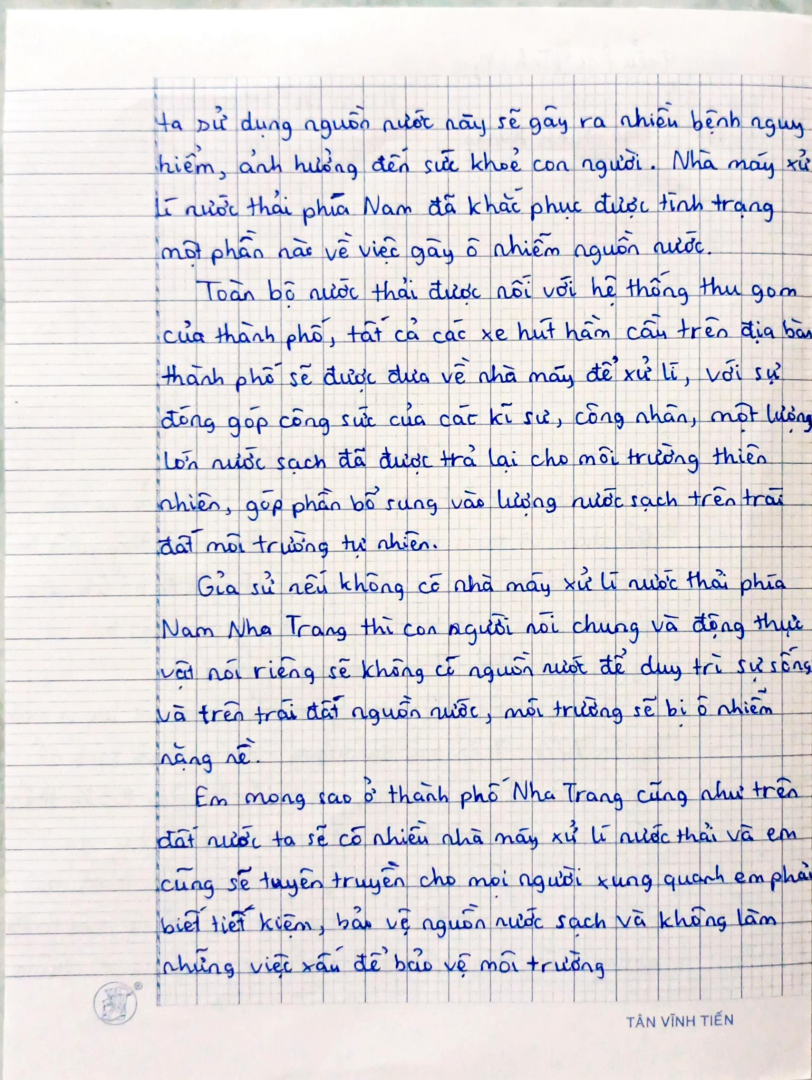 ta sử dụng nguồn nước này sẽ gây ra nhiều bệnh nguy
hiểm, ảnh hưởng đến sức khoẻ con người. Nhà máy xử
lí nước thải phía Nam đã khắc phục được tình trạng
một phần nào về việc gây ô nhiễm nguồn nước.
Toàn bộ nước thải được nối với hệ thống thu gom
của thành phố, tất cả các xe hút hầm cầu trên địa bàn
thành phố sẽ được đưa về nhà máy để xử lí, với sự
đóng góp công sức của các kĩ sư, công nhân, một lượng
lớn nước sạch đã được trả lại cho môi trường thiên
nhiên, góp phần bổ sung vào lượng nước sạch trên trái
đất môi trường tự nhiên.
Gỉa sử nếu không có nhà máy xử lí nước thải phía
Nam Nha Trang thì con người nói chung và động thực
vật nói riêng sẽ không có nguồn nước để duy trì sự sống
và trên trái đất nguồn nước, môi trường sẽ bị ô nhiễm
nặng nề.
Em mong sao ở thành phố Nha Trang cũng như trên
đất nước ta sẽ có nhiều nhà máy xử lí nước thải và em
cũng sẽ tuyên truyền cho mọi người xung quanh em phải
biết tiết kiệm, bảo vệ nguồn nước sạch và không làm
những việc xấu để bảo vệ môi trường
TÂN VĨNH TIẾN